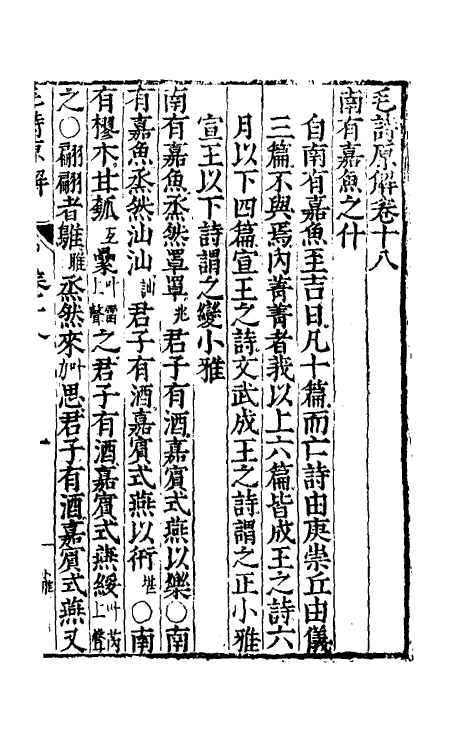 毛詩原解卷十八
南有嘉魚之什
自南有嘉魚至吉日凡十篇而亡詩由庚崇丘由儀
三篇不與焉內菁菁者莪以上六篇皆成王之詩六
月以下四篇宣王之詩文武成王之詩謂之正小雅
宣王以下詩謂之變小雅
南有嘉魚烝然罩罩兆君子有酒嘉賓式燕以樂○南
有嘉魚烝然汕汕訕君子有酒嘉賓式燕以衎堪○南
有樛木甘瓠互纍叶雷上聲之君子有酒嘉賓式燕綏叶芮上聲
之○翩翩者鵻雖烝然來叶思君子有酒嘉賓式燕又
毛詩原解 卷十八 小雅